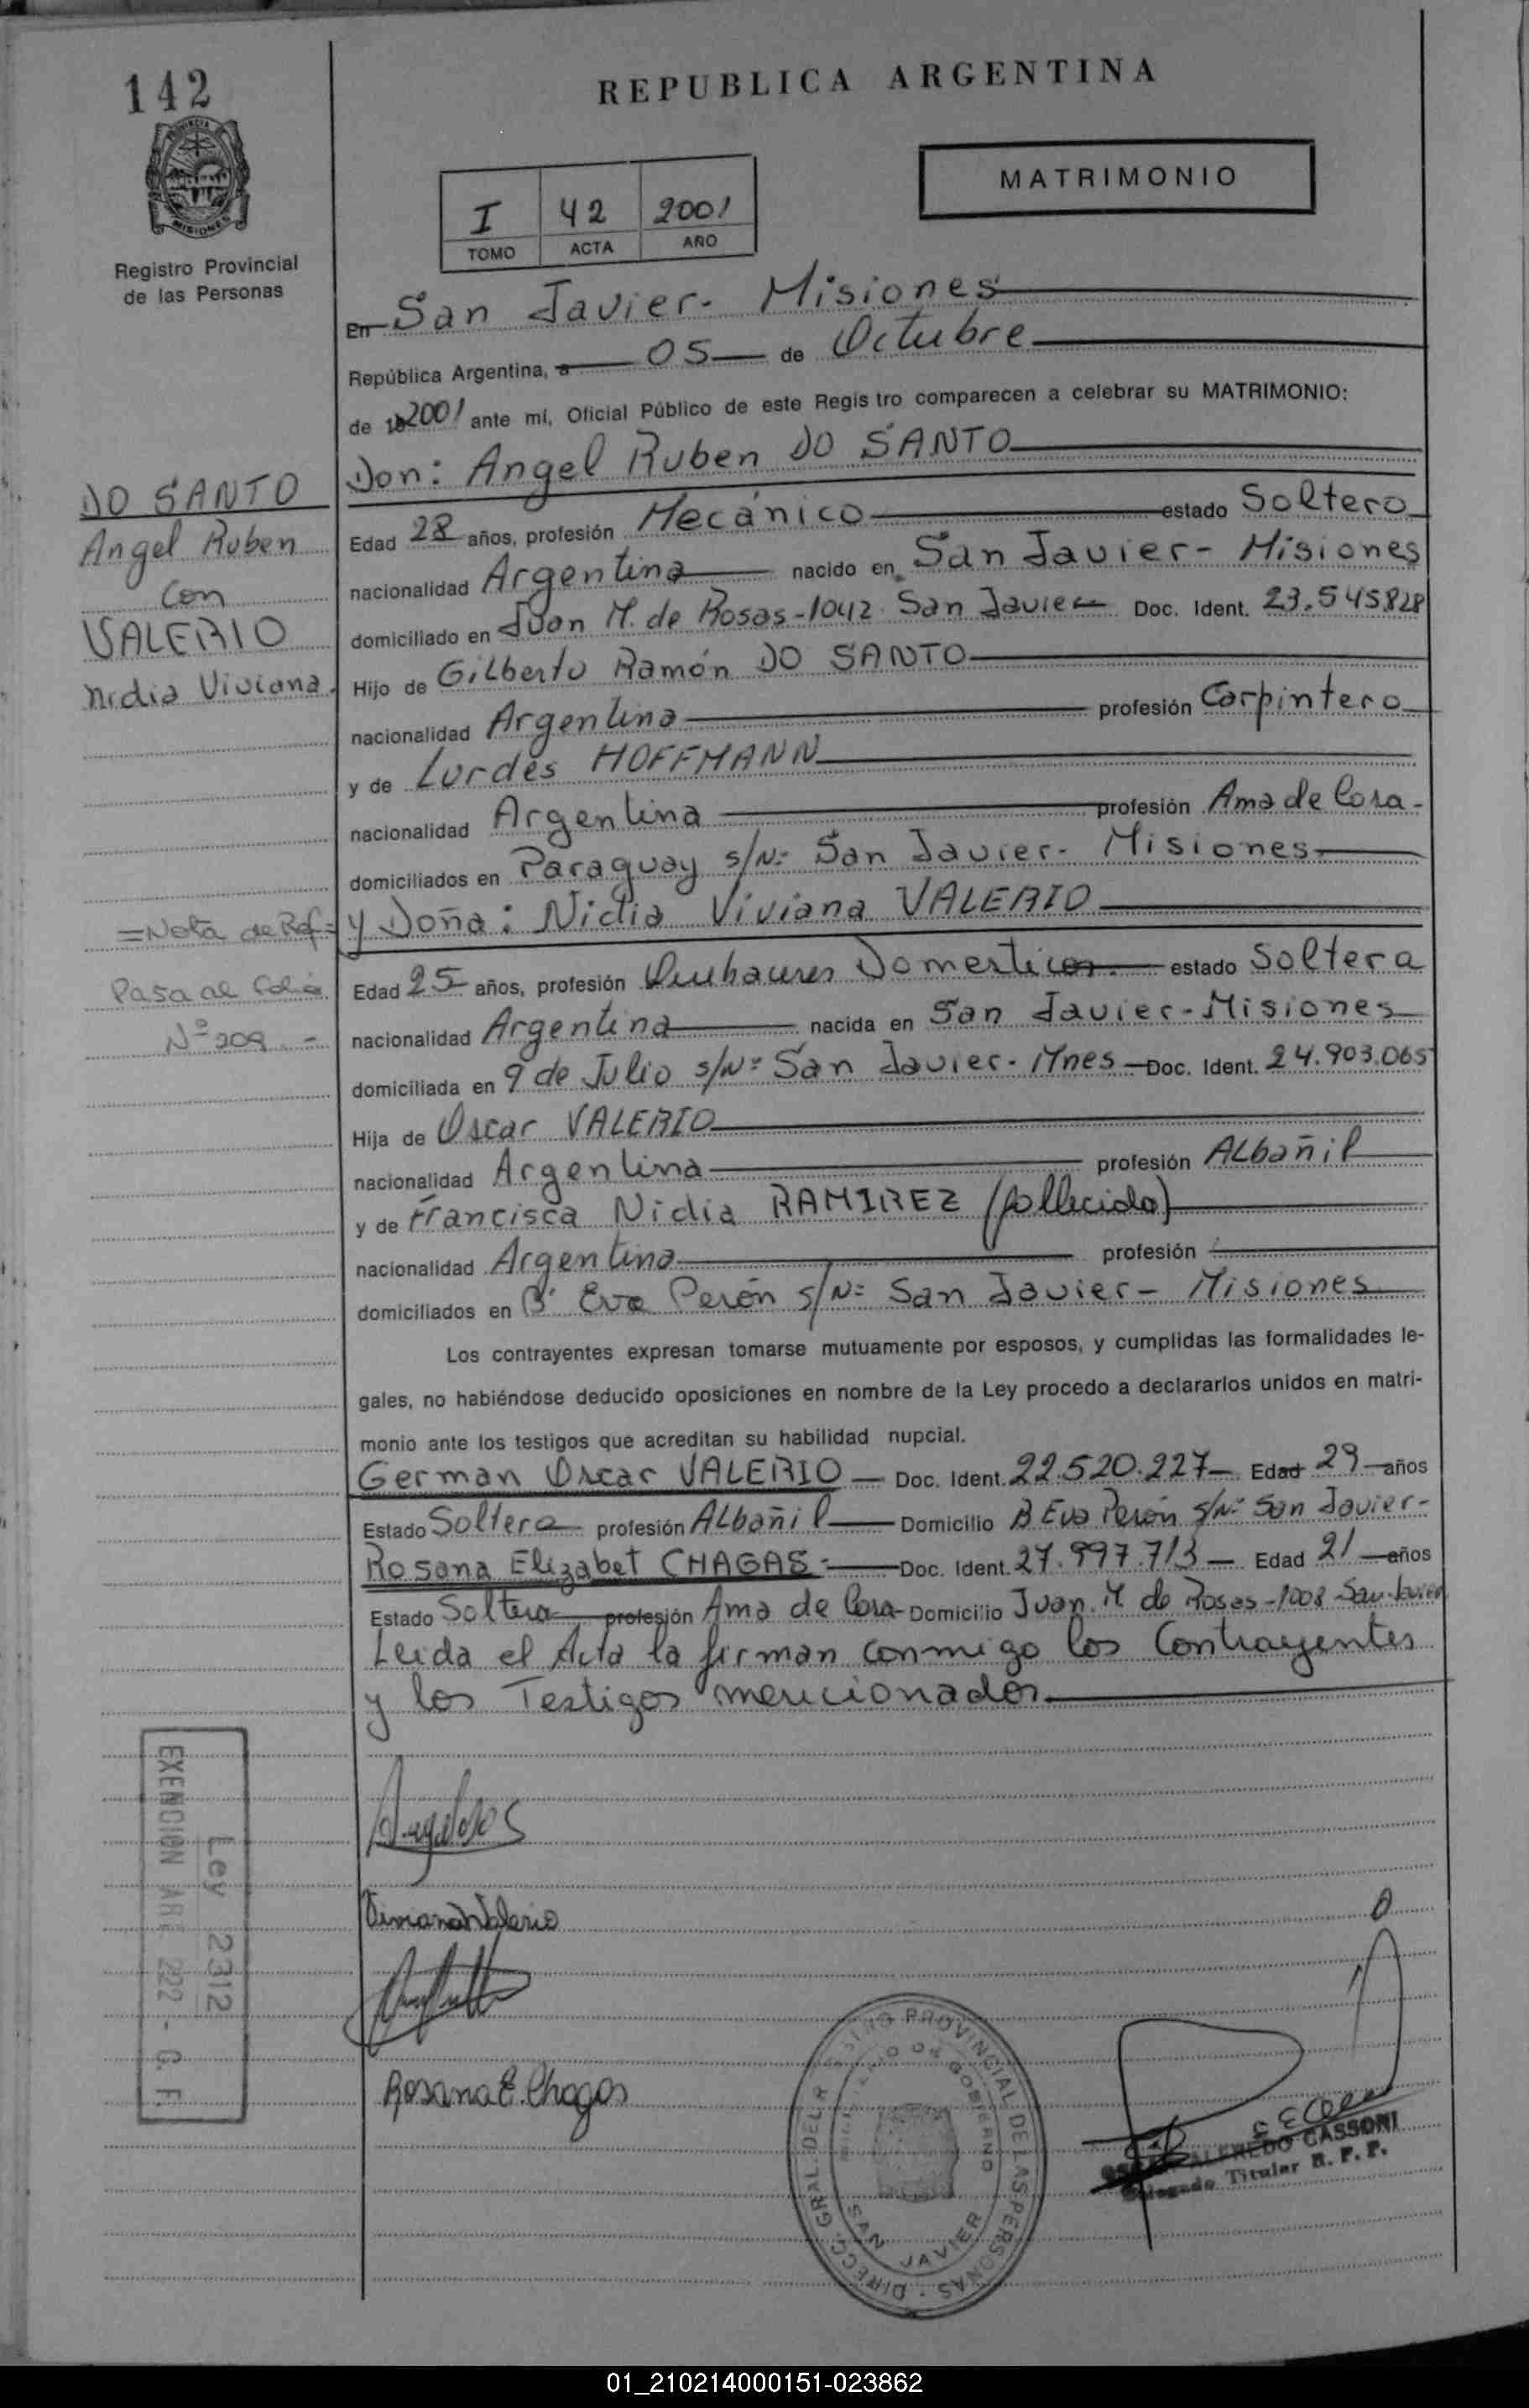 142
REPUBLICA ARGENTINA
MATRIMONIO
PROVINCIA DE
MISIONES
Registro Provincial
de las Personas
I 42 2001
TOMO ACTA AÑO
En San Javier- Misiones
República Argentina, a 05 de Octubre
de 2001 ante mí, Oficial Público de este Registro comparecen a celebrar su MATRIMONIO:
Don: Angel Ruben DO SANTO
Edad 28 años, profesión Mecánico estado Soltero
nacionalidad Argentina nacido en San Javier- Misiones
domiciliado en Juan M. de Rosas-1042 San Javier Doc. Ident. 23.545828
Hijo de Gilberto Ramón DO SANTO
nacionalidad Argentina profesión Carpintero
y de Lurdes HOFFMANN
nacionalidad Argentina profesión Ama de Casa-
domiciliados en Paraguay s/N: San Javier- Misiones
y Doña: Nidia Viviana VALERIO
Edad 25 años, profesión Quehaceres Domesticos estado Soltera
nacionalidad Argentina nacida en San Javier-Misiones
domiciliada en 9 de Julio s/N: San Javier- Mnes Doc. Ident. 24.903.065
Hija de Oscar VALERIO
nacionalidad Argentina profesión Albañil
y de Francisca Nidia RAMIREZ (fallecida)
nacionalidad Argentina profesión
domiciliados en B° Eva Perón s/N: San Javier- Misiones
Los contrayentes expresan tomarse mutuamente por esposos, y cumplidas las formalidades le-
gales, no habiéndose deducido oposiciones en nombre de la Ley procedo a declararlos unidos en matri-
monio ante los testigos que acreditan su habilidad nupcial.
German Oscar VALERIO Doc. Ident. 22.520.227 Edad 29 años
Estado Soltero profesión Albañil Domicilio B Eva Perón s/N: San Javier-
Rosana Elizabet CHAGAS- Doc. Ident. 27.997.713 Edad 21 años
Estado Soltera profesión Ama de Casa- Domicilio Juan M de Rosas-1008 San Javier
Leida el Acta la firman conmigo los Contrayentes
y los Testigos mencionados.
DO SANTO
Angel Ruben
Con
VALERIO
Nidia Viviana.
=Nota de Ref=
Pasa al Folio
Nº 209 -
Ley 2312
EXENCION ART. 222 - C. F.
Viviana Valerio
Rosana E. Chagas
DIRECC. GRAL. DEL REGISTRO PROVINCIAL DE LAS PERSONAS
MINISTERIO DE GOBIERNO
SAN JAVIER
ALFREDO CASSONI
Delegado Titular R. P. P.
01_210214000151-023862